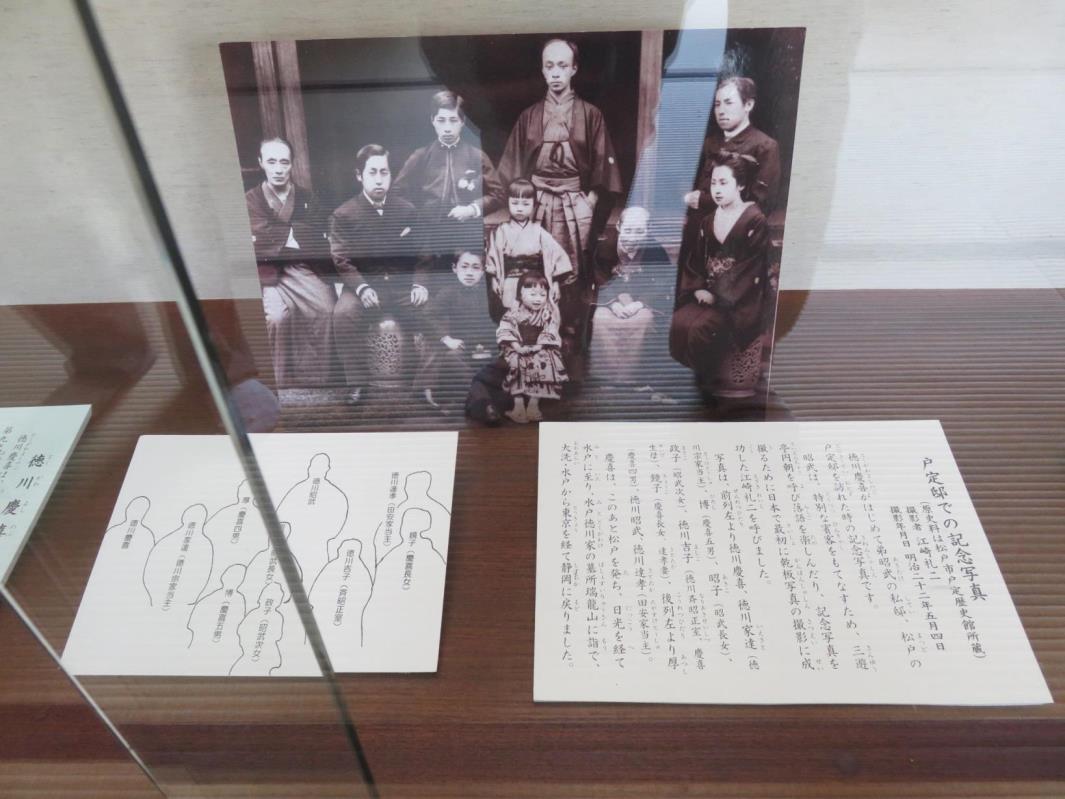 戸定邸での記念写真
(原史料は松戸市戸定歴史館所蔵)
撮影者 江崎礼二
撮影年月日 明治二十二年五月四日
徳川慶喜がはじめて弟昭武の私邸、松戸の
戸定邸を訪れた時の記念写真です。
昭武は、特別な賓客をもてなすため、三遊
亭円朝を呼び落語を楽しんだり、記念写真を
撮るために日本で最初に乾板写真の撮影に成
功した江崎礼二を呼びました。
写真は、前列左より徳川慶喜、徳川家達(徳
川宗家当主)、博(慶喜五男)、昭子(昭武長女)、
政子(昭武次女)、徳川吉子(徳川斉昭正室、慶喜
生母)、鏡子(慶喜長女、達孝妻)。後列左より厚
(慶喜四男)徳川昭武、徳川達孝(田安家当主)。
慶喜は、このあと松戸を発ち、日光を経て
水戸に至り、水戸徳川家の墓所瑞龍山に詣で、
大洗・水戸から東京を経て静岡に戻りました。
徳川達孝(田安家当主)
鏡子(慶喜長女)
徳川吉子(斉昭正室)
徳川昭武
政子(昭武次女)
武長女)
厚(慶喜四男)
博(慶喜五男)
徳川家達(徳川宗家当主)
徳川慶喜
徳川慶喜
徳川慶喜は、